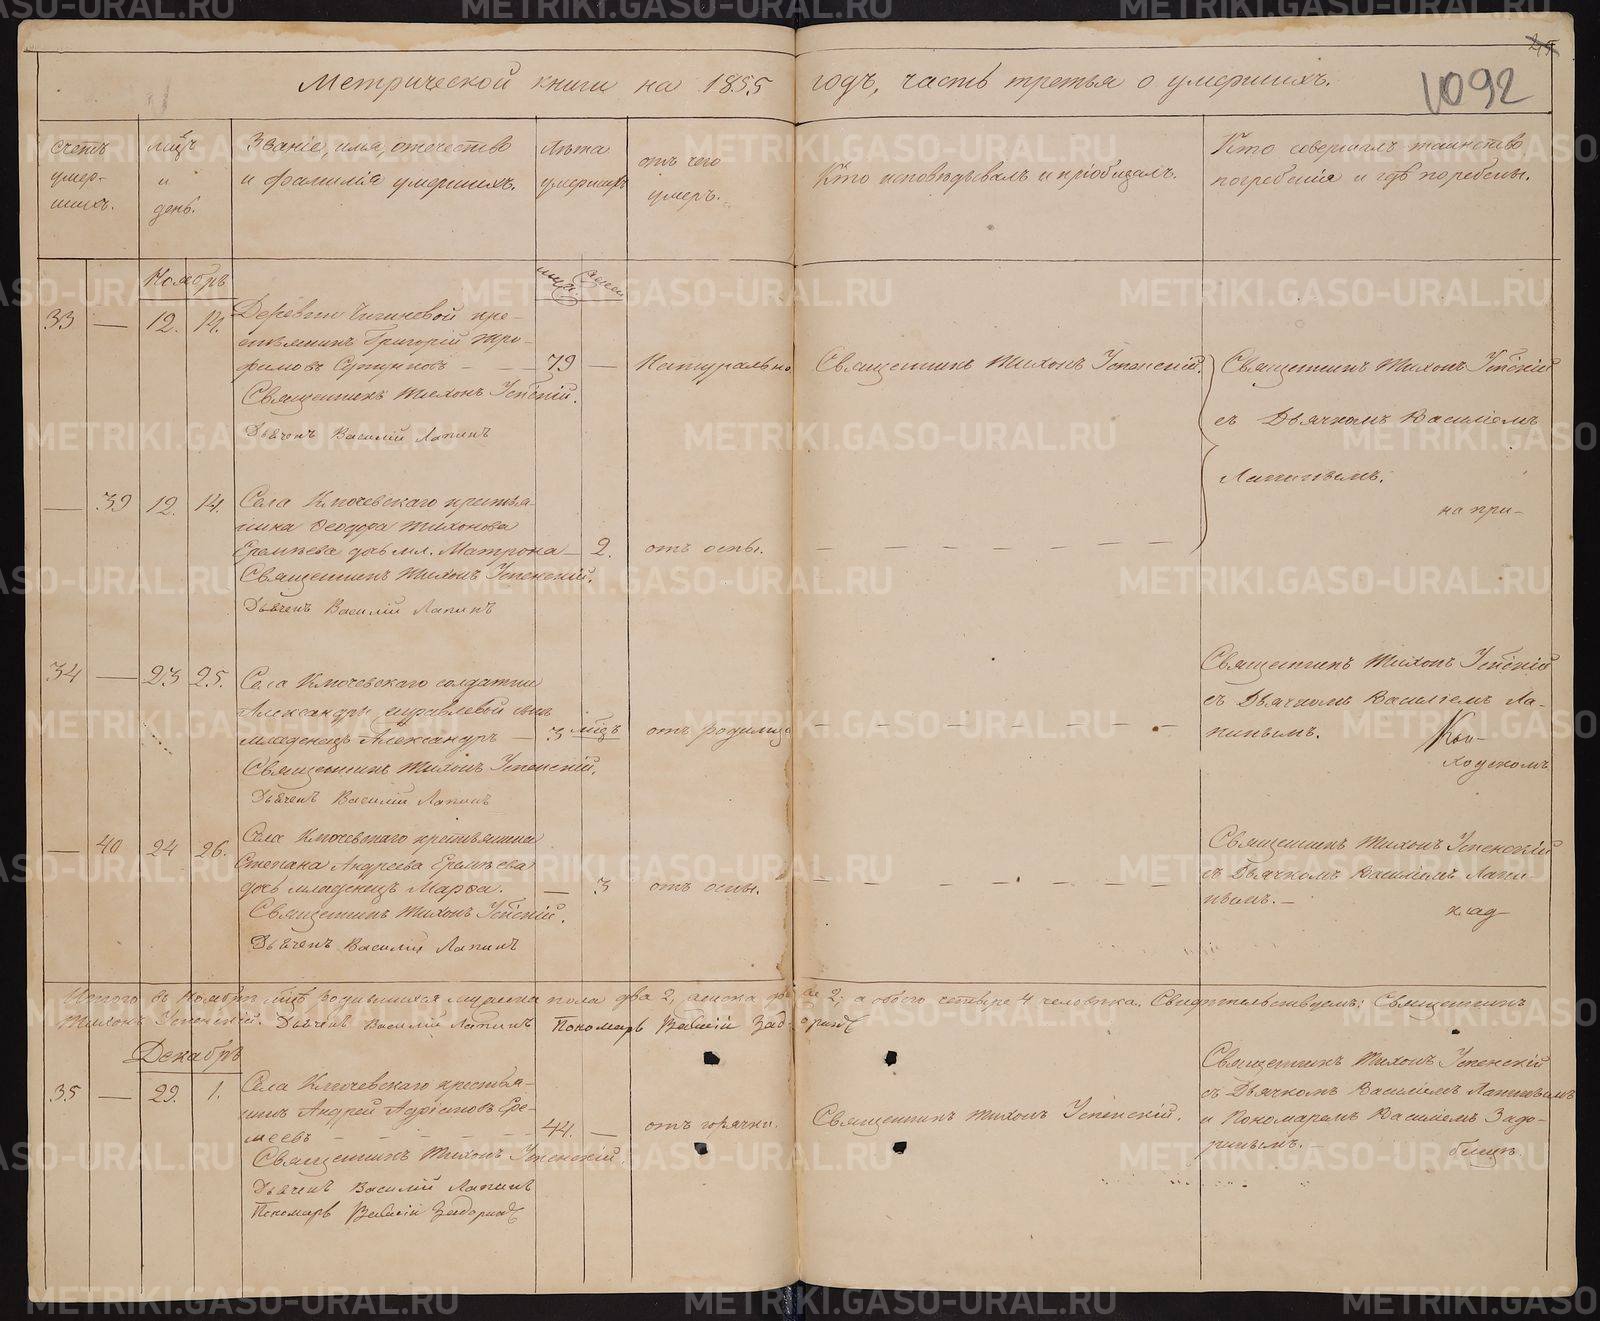 Метрической книги на 1855 годъ, часть третья о умершихъ.
1092
счетъ умер-шихъ.
мѣц и день.
Званіе, имя, отечество
и фамилія умершихъ.
Лѣта
умершихъ
отъ чего
умеръ.
Кто исповѣдывалъ и пріобщалъ.
Кто совершалъ таинство
погребенія и гдѣ погребены.
Ноябрь
33 — 12. 14.
Деревни
Григорій Тро-
фимовъ — 79 — Натурально Священникъ Тихонъ Успенскій. Священникъ Тихонъ Успенскій
Священникъ Тихонъ Успенскій.
Дьячекъ Василій Лапинъ
съ Дьячкомъ Василіемъ
Лапинымъ.
на при-
— 39 12. 14. Села Ключевскаго крестья-
нина Феодора Тихонова
Еремѣева дочь мл. Матрона — 2. отъ оспы. — — — — — — — —
Священникъ Тихонъ Успенскій.
Дьячекъ Василій Лапинъ
34 — 23 25. Села Ключевскаго солдатки
Александры сынъ
младенецъ Александръ — 3 мѣц отъ родимца — — — — — — — —
Священникъ Тихонъ Успенскій.
Дьячекъ Василій Лапинъ
Священникъ Тихонъ Успенскій
съ Дьячкомъ Василіемъ Ла-
пинымъ.
ходскомъ
— 40 24 26. Села Ключевскаго крестьянина
Степана Андреева Еремѣева
дочь младенецъ Марфа. — 3 отъ оспы. — — — — — — — —
Священникъ Тихонъ Успенскій.
Дьячекъ Василій Лапинъ
Священникъ Тихонъ Успенскій
съ Дьячкомъ Василіемъ Лапи-
нымъ. —
клад-
Итого въ Ноябрѣ мѣц родившихся мужска пола два 2, женска двѣ 2, а обоего четыре 4 человѣка. Свидѣтельствуемъ: Священникъ
Тихонъ Успенскій. Дьячекъ Василій Лапинъ Пономарь
Декабрь
35 — 29. 1. Села Ключевскаго крестья-
нинъ Андрей Ере-
меевъ — — — — — 44. — отъ горячки. Священникъ Тихонъ Успенскій.
Священникъ Тихонъ Успенскій.
Дьячекъ Василій Лапинъ
Пономарь
Священникъ Тихонъ Успенскій
съ Дьячкомъ Василіемъ Лапинымъ
и Пономаремъ Василіемъ Задо-
ринымъ. —
бищѣ.
METRIKI.GASO-URAL.RU